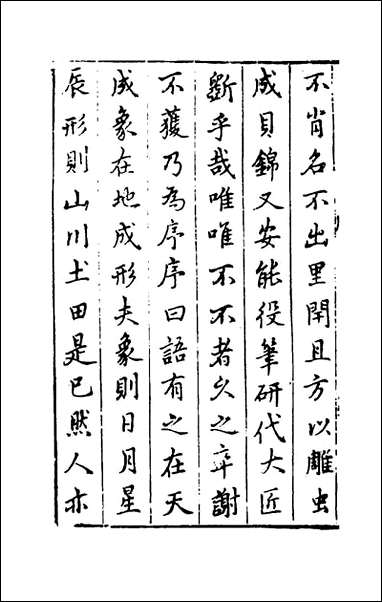 不肖名不出里閈且方以雕虫
成貝錦又安能役筆研代大匠
斲乎哉唯唯不不者久之卒謝
不獲乃為序序曰語有之在天
成象在地成形夫象則日月星
辰形則山川土田是已然人亦